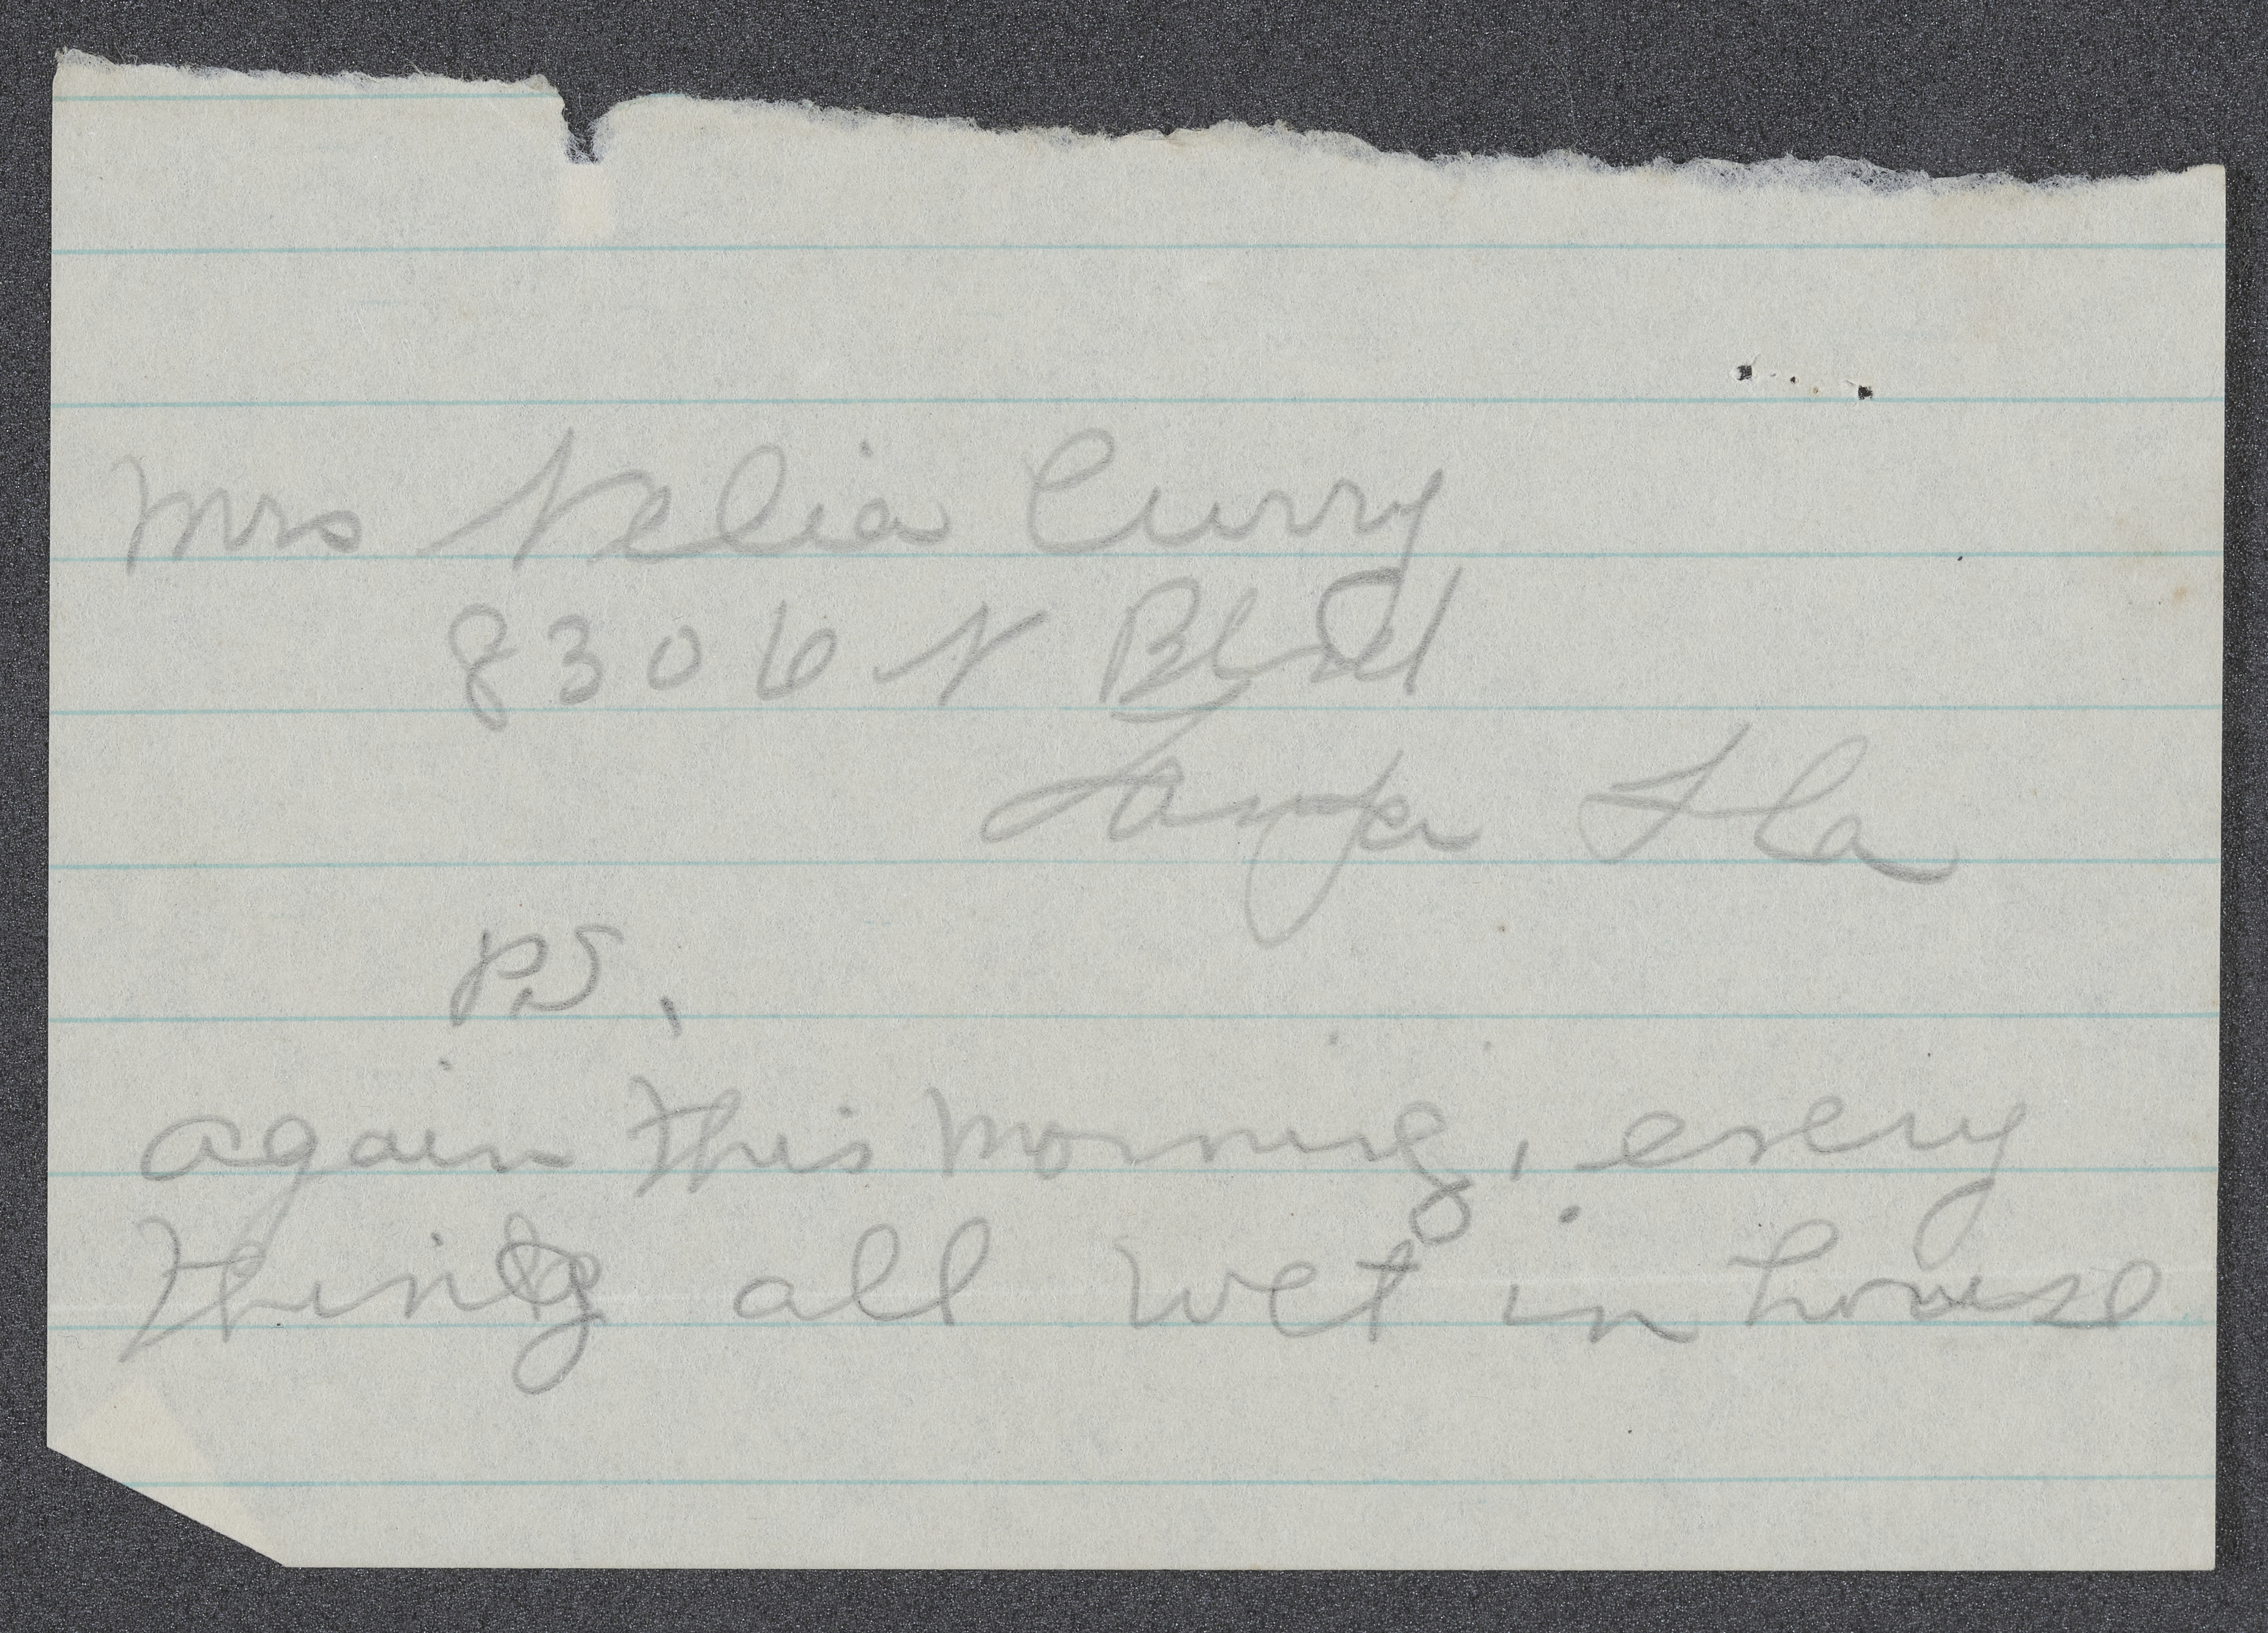 Mrs Nelia Curry
8306 N Blvd
Tampa Fla
PS.
again this morning, every
thing all wet in house